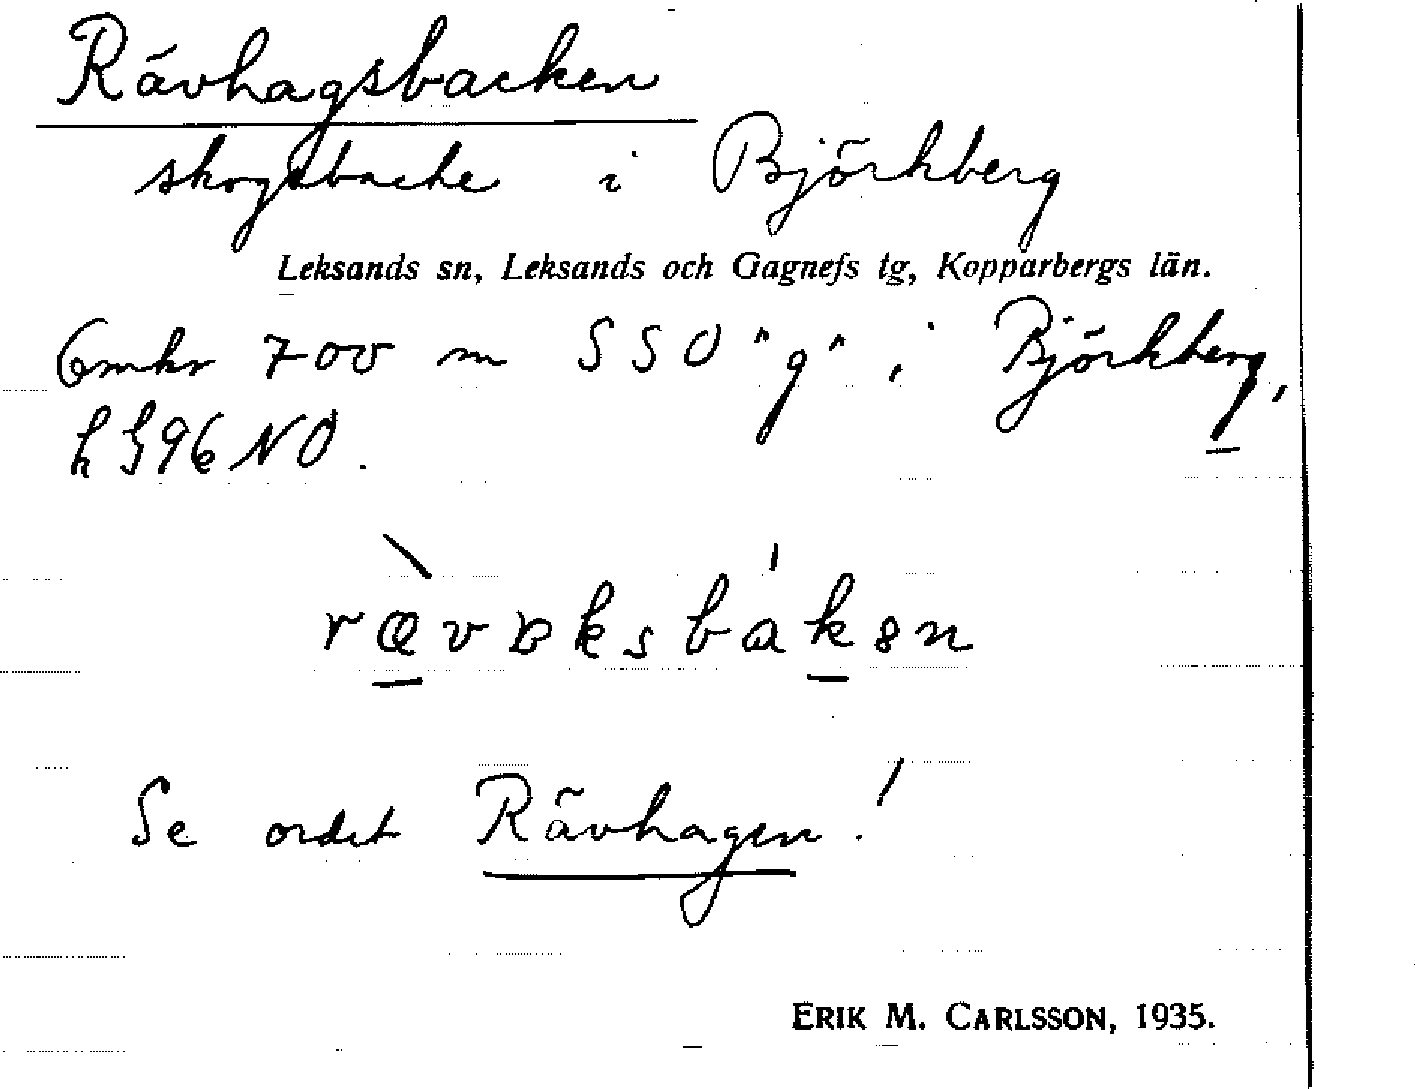 Rävhagsbacken
skogsbacke i Björkberg
Leksands sn, Leksands och Gagnefs tg, Kopparbergs län.
Omkr 700 m SSO "g" i Björkberg,
h§96NO.
rævɒksbakən
Se ordet Rävhagen!
ERIK M. CARLSSON, 1935.